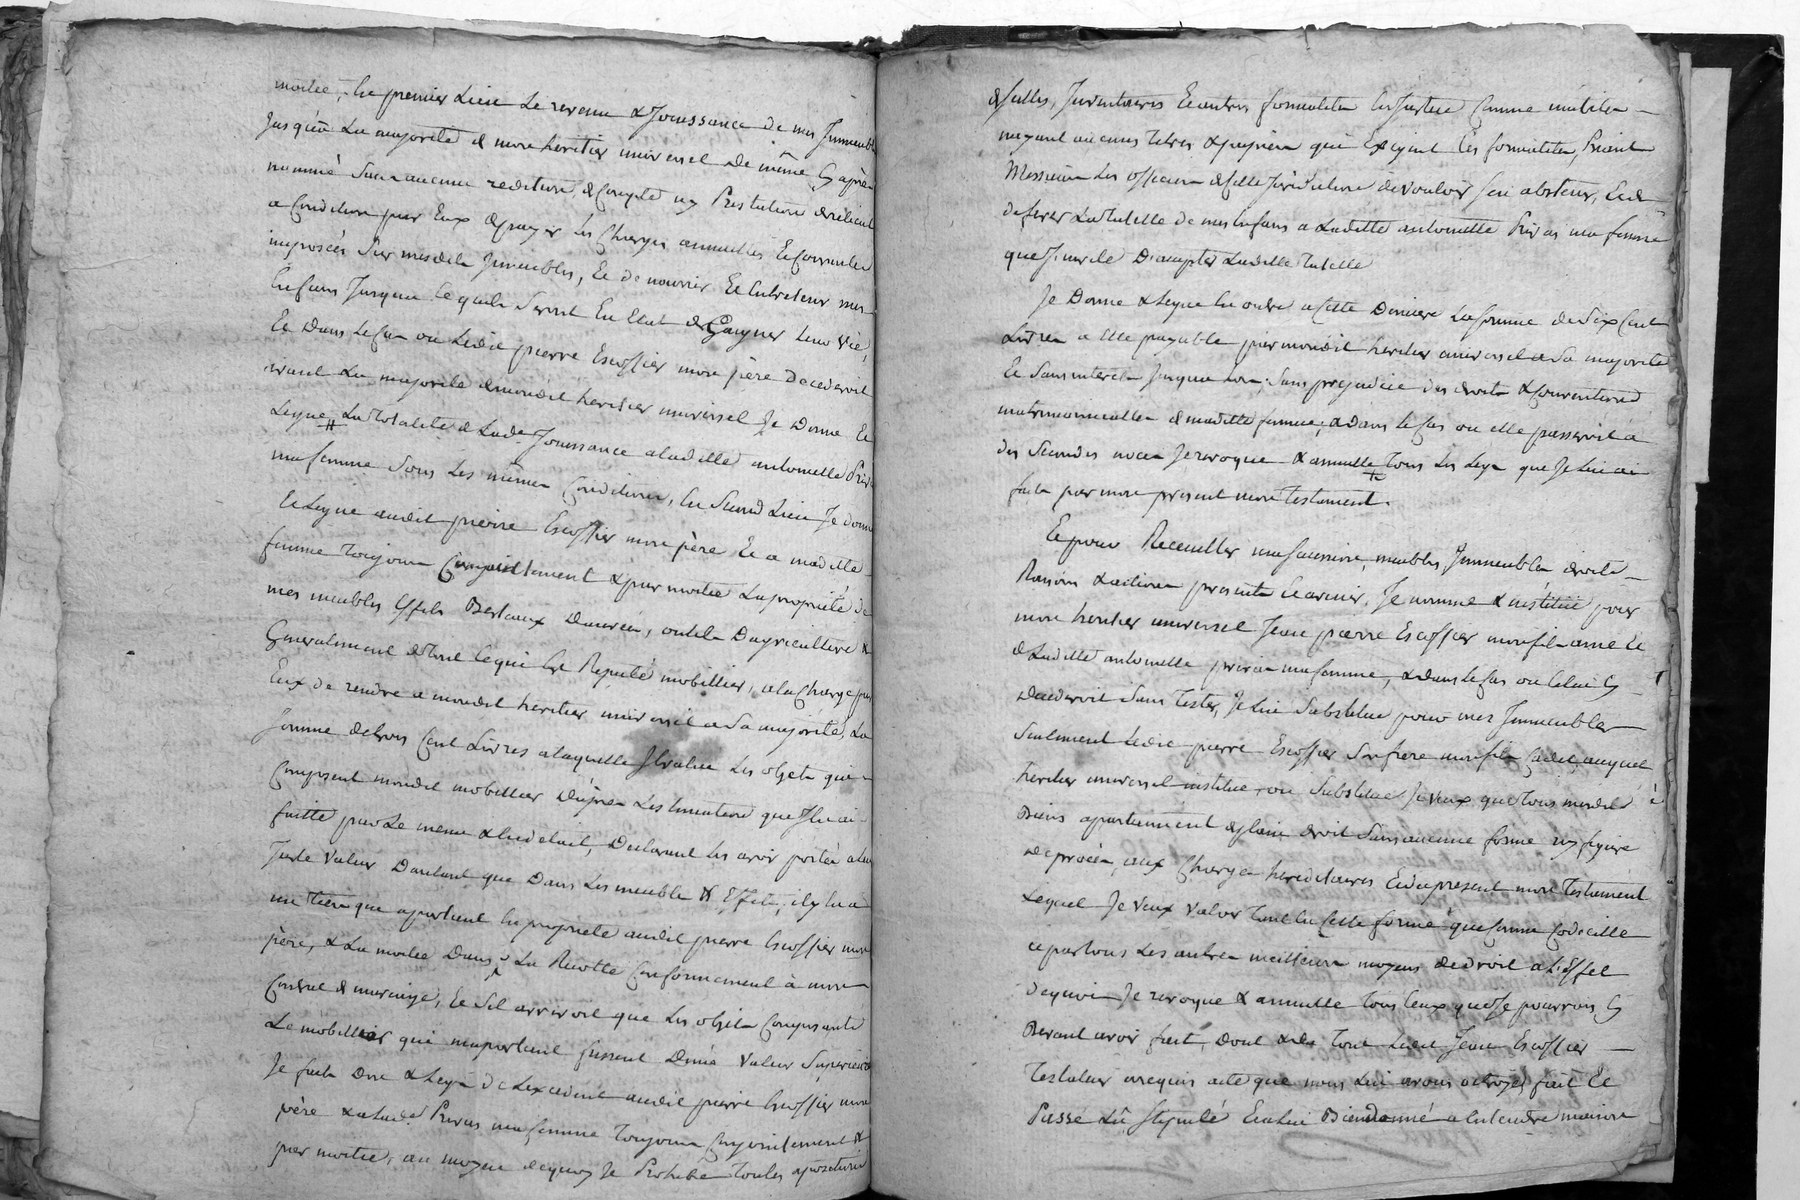 moitié, En premier Lieu Le revenu & Jouissance de mes Immeubles
Jusqu'a La majorité de mon heritier universel de même Cy après
nommé Sans aucune redition de Compte ny Prestation de reliquat
a Condition par Eux de payer Les Charges annuelles Et Courantes
imposées Sur mesdits Immeubles, Et de nourrir Et Entretenir mes
Enfans Jusqu'a Ce quils Seront En Etat de Gaigner leur vie,
Et Dans Le Cas ou Ledit pierre Escoffier mon père Decederoit
avant La majorité de mondit heritier universel Je Donne Et
Legue La totalité de Lade Jouissance a ladite antoinette Privas
ma femme Sous Les mêmes Conditions, En Second Lieu Je donne
Et Legue audit pierre Escoffier mon père Et a madite
femme toujours Conjointement & par moitié La propriété de
mes meubles Effets Bestiaux Danrées, outils D'agriculture &
Generalement de tout Ce qui Est Reputé mobillier, a la Charge par
Eux de rendre a mondit heritier universel a Sa majorité, La
Somme de trois Cent Livres a laquelle J'Evalue Les objets qui
Composent mondit mobillier D'après L'estimation que J'En ai
faitte par Le menu & En detail, Declarant Les avoir portés a leur
Juste valeur D'autant que Dans Les meubles & Effets, il y En a
un tiers que apartient En propriété audit pierre Escoffier mon
père, & La moitié Dans La Récolte Conformement à mon
Contrat de mariage, Et S'il arrivoit que Les objets Composants
Le mobillier qui m'apartient fussent D'une valeur Superieure
Je fait Don & Legs de L'excedent audit pierre Escoffier mon
père & a Lade Privas ma femme toujours Conjointement &
par moitié, au moyen de quoy Je Prohibe toutes aposition
de Sellés, Inventaires Et autres formalités En Justice Comme inutiles
n'ayant aucuns titres & papiers qui Exigent Ces formalités, Priant
Messieurs Les officiers de Cette Jurisdiction de vouloir S'en abstenir, Et de
deferer La tutelle de mes Enfans a Laditte antoinette Privas ma femme
que J'invite D'accepter Laditte tutelle
Je Donne & Legue En outre a Cette Derniere La Somme de Six Cent
Livres a Elle payable par mondit heritier universel a Sa majorité
Et Sans interets Jusqu'a Lors Sans prejudice des droits & Conventions
matrimonialles de maditte femme, & dans Le Cas ou elle passeroit a
des Secondes noces Je revoque & annulle tous Les Legs que Je Lui ai
faits par mon present mon testament.
Et pour Recueuiller ma Sucession, meubles, Immeubles droits
Raisons & actions presents Et avenir, Je nomme & institüe pour
mon heritier universel Jean pierre Escoffier mon fils ainé Et
de Laditte antoinette privas ma femme, & dans Le Cas ou Celui Cy
Decederoit Sans tester, Je Lui Substitue pour mes Immeubles
Seulement Ledit pierre Escoffier Son frere mon fils Cadet, auquel
heritier universel institué, ou Substitué Je veux que tous mesdits
Biens apartiennent de plain droit Sans aucune forme ny figure
de procès, aux Charges hereditaires Et du present mon testament
Lequel Je veux valoir tant En Cette forme que Comme Codicille
et par tous Les autres meilleurs moyens de droit a L'Effet
de quoi Je revoque & annulle tous Ceux que Je pourrois Cy
Devant avoir fait, Dont & du tout Ledit Jean Escoffier
Testateur a requis acte que nous Lui avons octroyé, fait Et
Passé Lû Stipulé Et a Lui Bien donné a Entendre maison